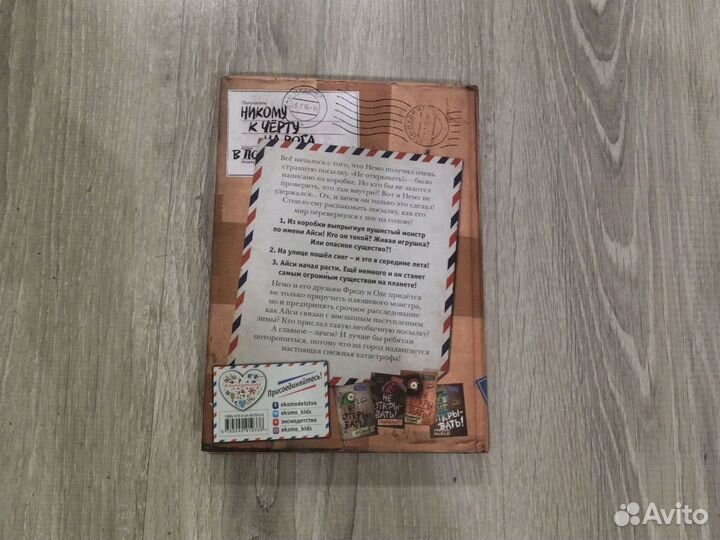 Получатель:
НИКОМУ
К ЧЁРТУ
НА РОГА
Всё началось с того, что Немо получил очень
странную посылку. «Не открывать!» – было
написано на коробке. Но кто бы не захотел
проверить, что там внутри?! Вот и Немо не
удержался... Ох, и зачем он только это сделал!
Стоило ему распаковать посылку, как его
мир перевернулся с ног на голову!
1. Из коробки выпрыгнул пушистый монстр
по имени Айси! Кто он такой? Живая игрушка?
Или опасное существо?!
2. На улице пошёл снег – и это в середине лета!
3. Айси начал расти. Ещё немного и он станет
самым огромным существом на планете!
Немо и его друзьям Фреду и Оде придётся
не только приручить плюшевого монстра,
но и предпринять срочное расследование:
как Айси связан с внезапным наступлением
зимы? Кто прислал такую необычную посылку?
А главное – зачем? И лучше бы ребятам
поторопиться, потому что на город надвигается
настоящая снежная катастрофа!
Присоединяйтесь!
eksmodetstvo
eksmo_kids
эксмодетство
eksmo_kids
НЕ
ОТКРЫ-
ВАТЬ!
НЕ
ОТКРЫ-
ВАТЬ!
НЕ
ОТКРЫ-
ВАТЬ!
ОТКРЫ-
ВАТЬ!
Avito